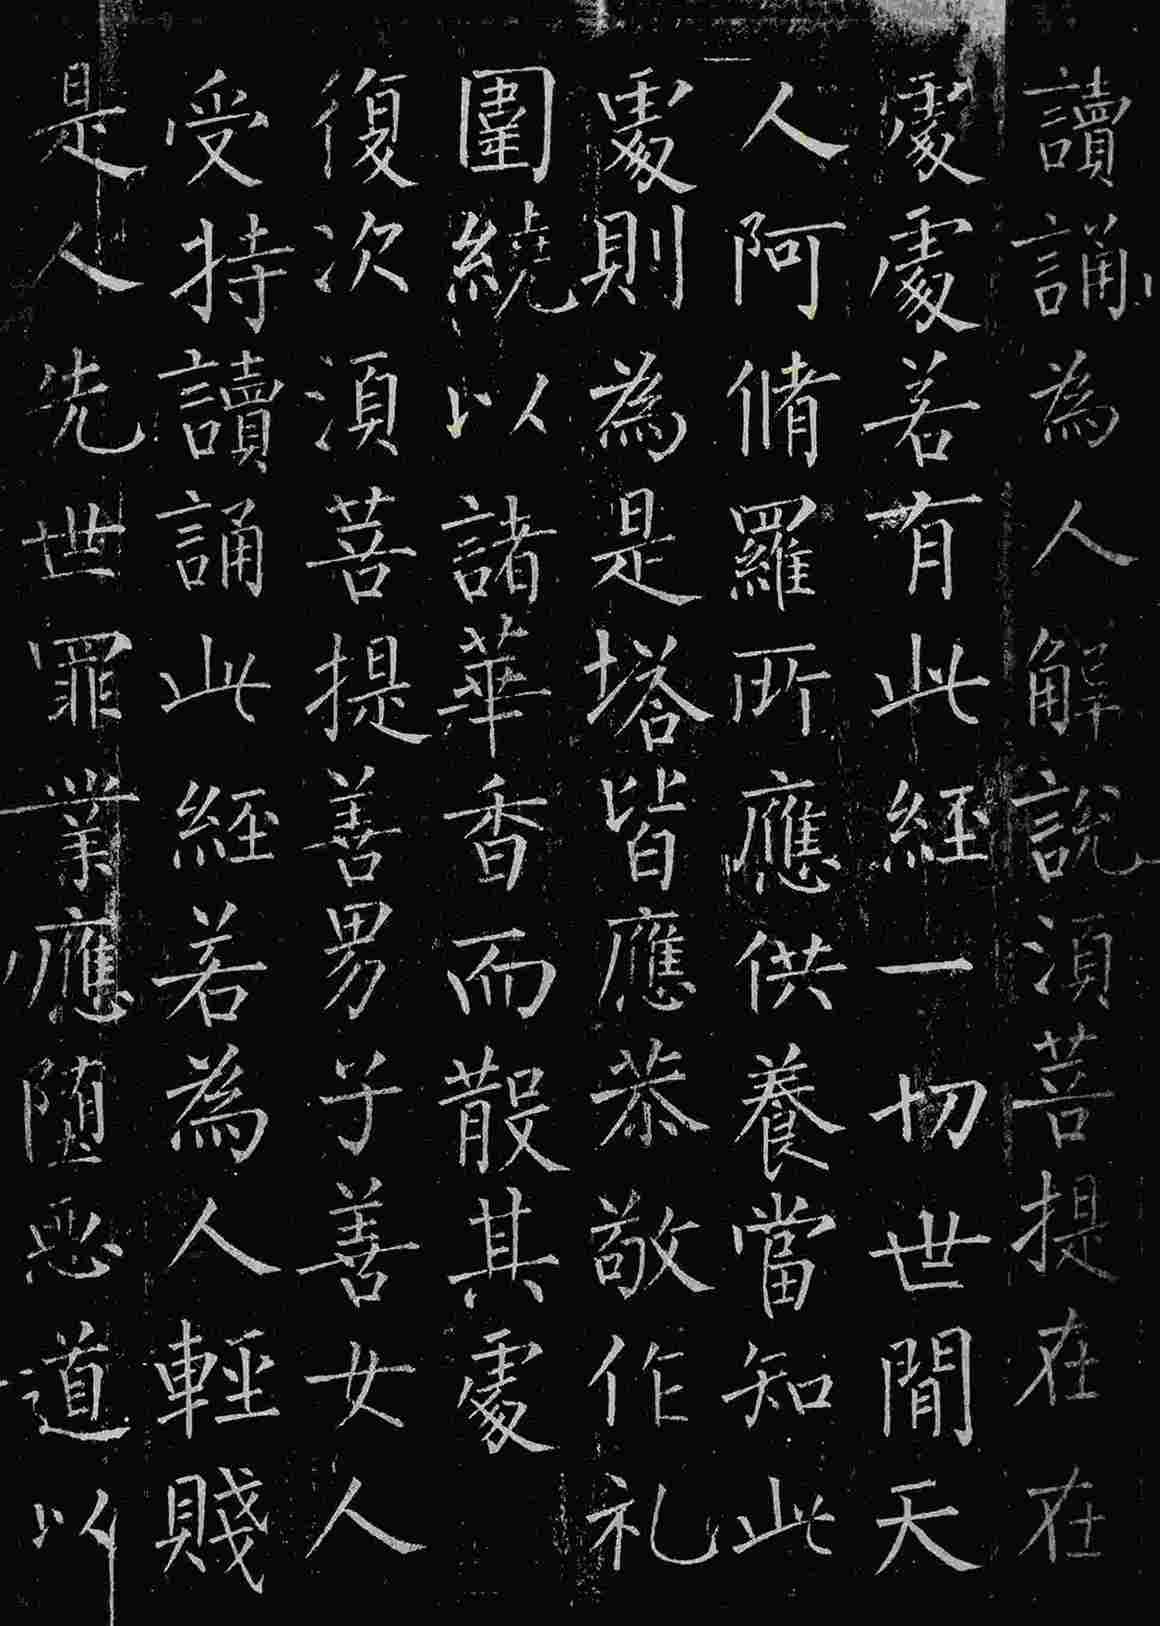 讀誦為人解說湏菩提在在
處處若有此經一切世間天
人阿脩羅所應供養當知此
處則為是塔皆應恭敬作礼
圍繞以諸華香而散其處
復次湏菩提善男子善女人
受持讀誦此經若為人輕賤
是人先世罪業應墮惡道以